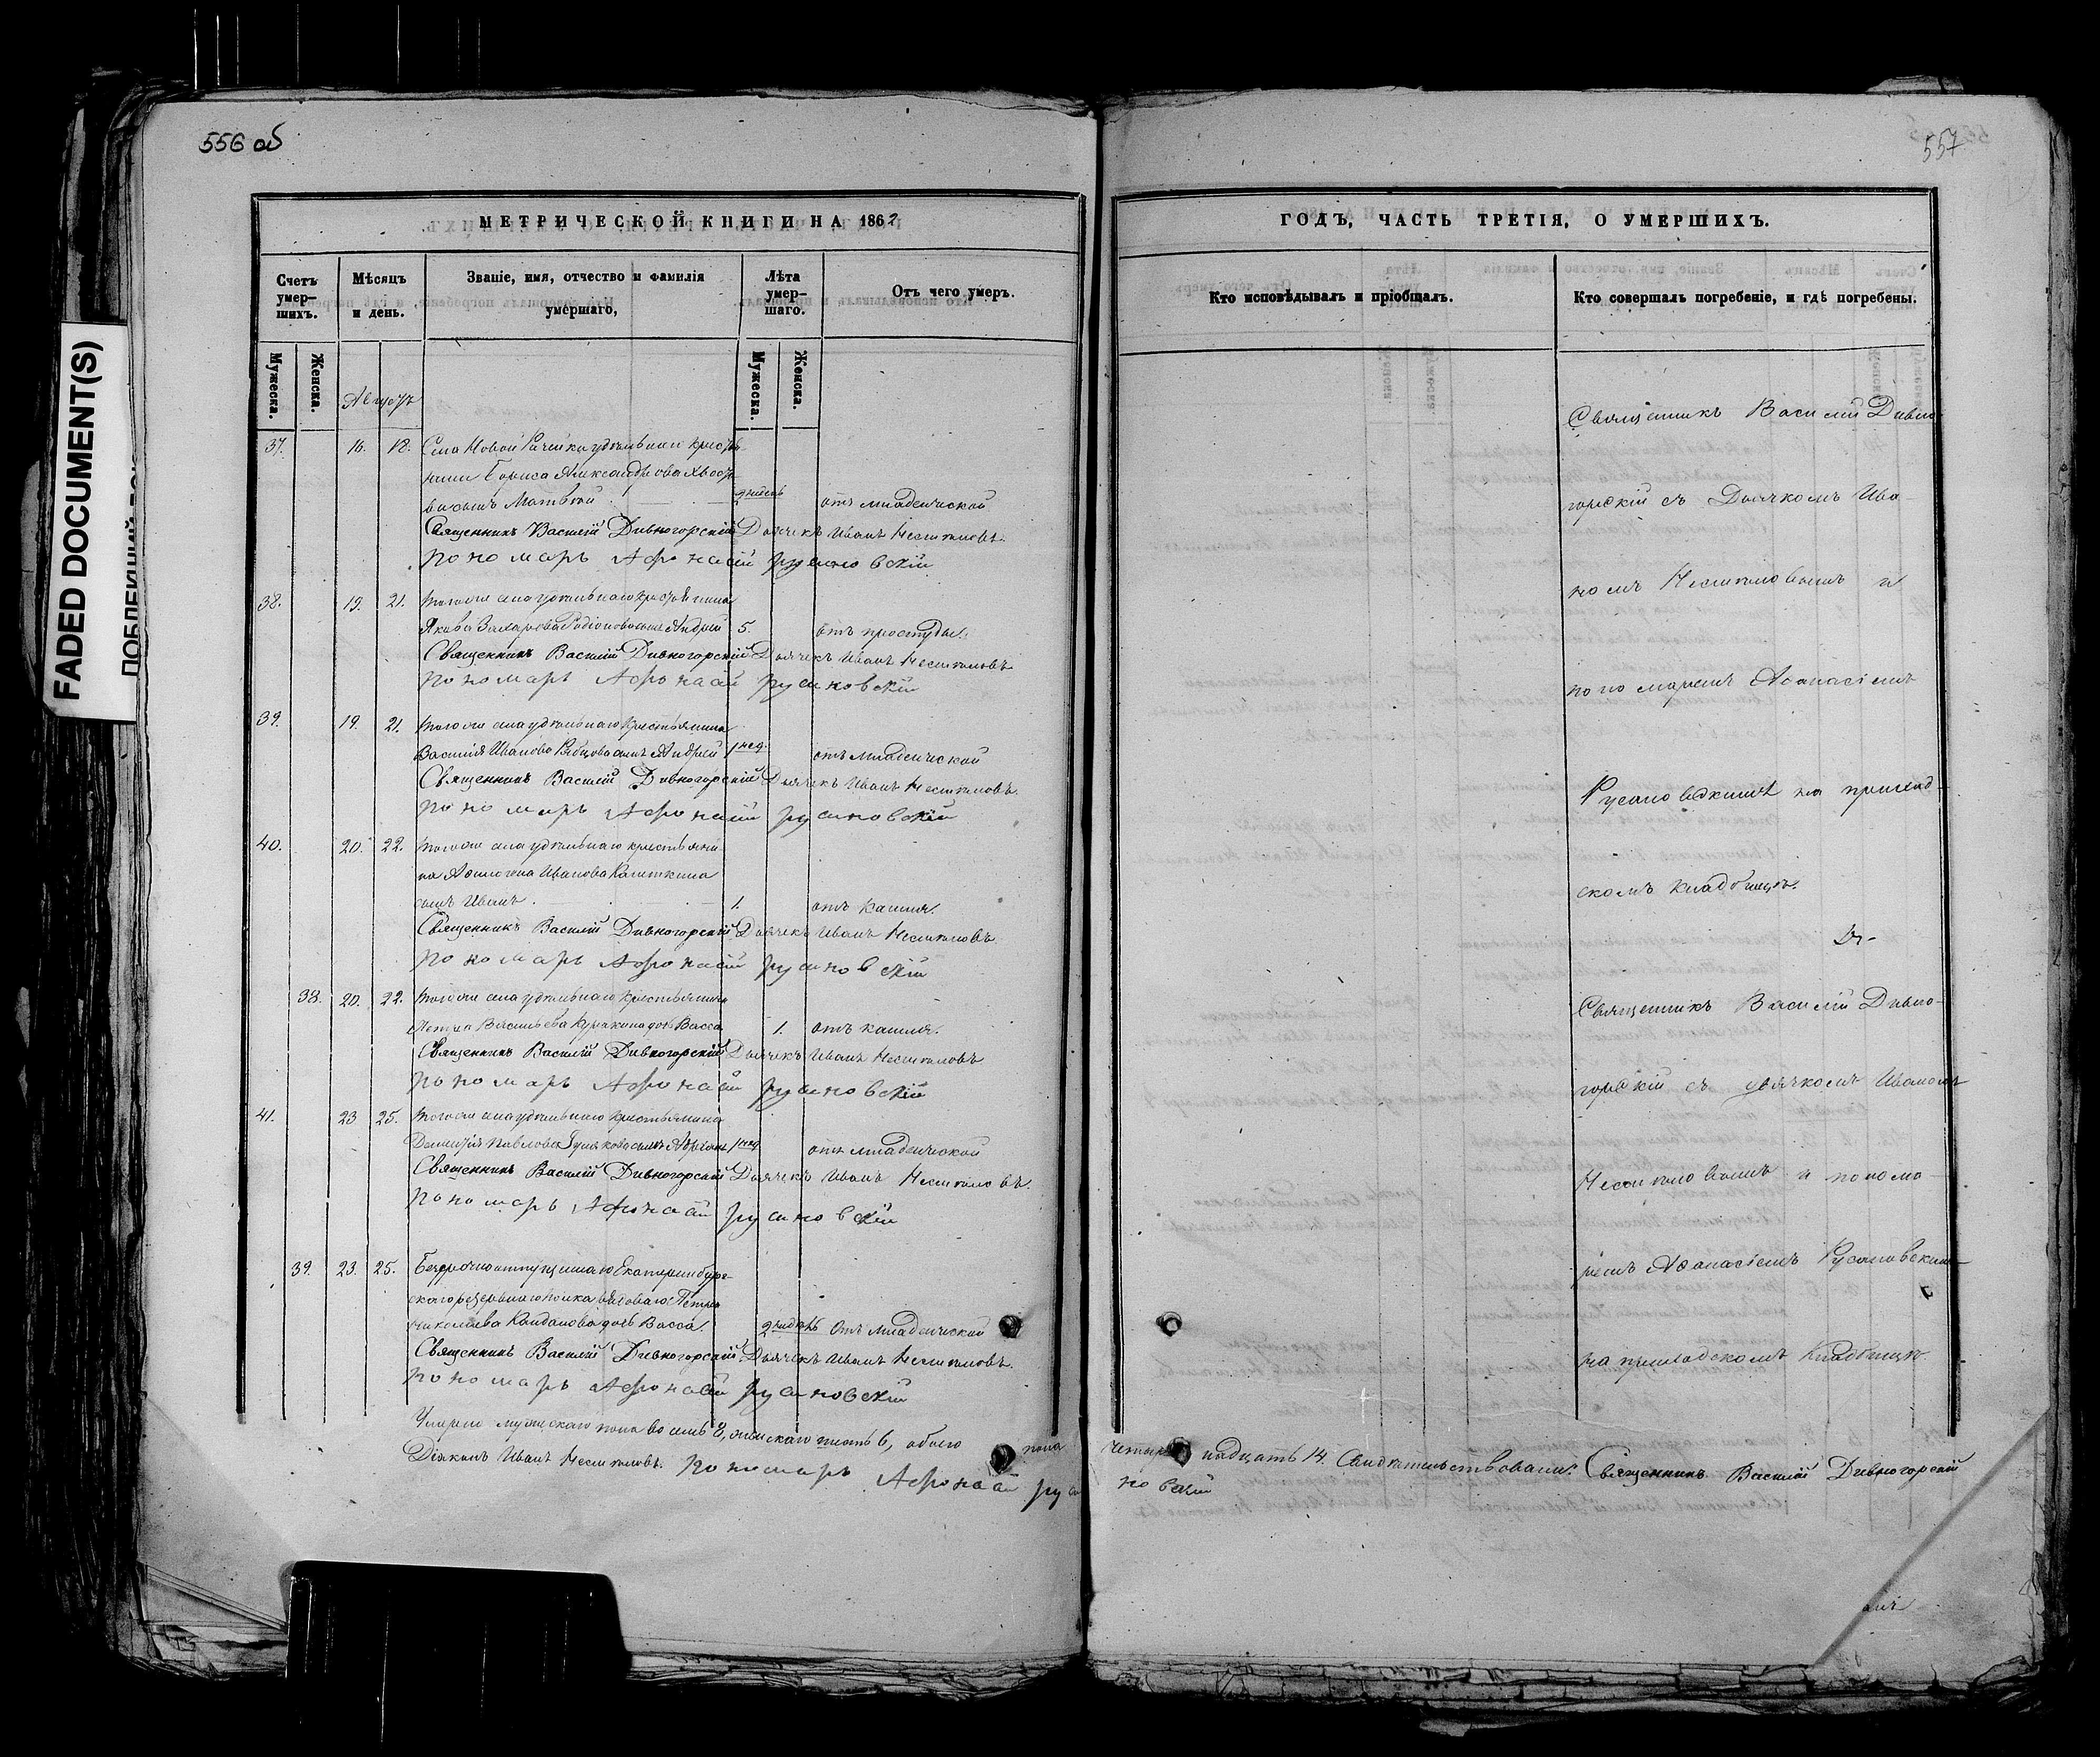 556 об
557
FADED DOCUMENT(S)
МЕТРИЧЕСКОЙ КНИГИ НА 1862
Счетъ умер-шихъ.
Мѣсяцъ и день.
Званіе, имя, отчество и фамилія умершаго,
Лѣта умер-шаго.
Отъ чего умеръ.
Мужеска.
Женска.
Мужеска.
Женска.
Августъ
37. 16. 18. Села Новой Рачейки удѣльнаго крестья-
нина Бориса Александрова
сынъ Матвѣй отъ младенческой
Священникъ Василій Дивногорскій Дьячекъ Иванъ
Пономарь Афонасій Русановскій
38. 19. 21. Тогоже села удѣльнаго крестьянина
Якова Захарова Родіонова сынъ Андрей 5. отъ простуды.
Священникъ Василій Дивногорскій Дьячекъ Иванъ
Пономарь Афонасій Русановскій
39. 19. 21. Тогоже села удѣльнаго крестьянина
Василія Иванова сынъ Андрей 1 нед. отъ младенческой
Священникъ Василій Дивногорскій Дьячекъ Иванъ
Пономарь Афонасій Русановскій
40. 20. 22. Тогоже села удѣльнаго крестьяни-
на Иванова
сынъ Иванъ 1. отъ кашля.
Священникъ Василій Дивногорскій Дьячекъ Иванъ
Пономарь Афонасій Русановскій
38. 20. 22. Тогоже села удѣльнаго крестьянина
Петра Васильева дочь Васса 1. отъ кашля.
Священникъ Василій Дивногорскій Дьячекъ Иванъ
Пономарь Афонасій Русановскій
41. 23 25. Тогоже села удѣльнаго крестьянина
Павлова сынъ 1 нед отъ младенческой
Священникъ Василій Дивногорскій Дьячекъ Иванъ
Пономарь Афонасій Русановскій
39. 23. 25. Безсрочноотпускнаго Екатеринбург-
скаго резервнаго полка рядоваго Петра
Николаева дочь Васса. Отъ младенческой
Священникъ Василій Дивногорскій Дьячекъ Иванъ
Пономарь Афонасій Русановскій
ГОДЪ, ЧАСТЬ ТРЕТІЯ, О УМЕРШИХЪ.
Кто исповѣдывалъ и пріобщалъ.
Кто совершалъ погребеніе, и гдѣ погребены.
Священникъ Василій Дивно-
горскій съ Дьячкомъ Ива-
номъ и
пономаремъ Афанасіемъ
Русановскимъ на приход-
скомъ кладбищѣ.
Священникъ Василій Дивно-
горскій съ дьячкомъ Иваномъ
и понома-
ремъ Афанасіемъ Русановскимъ
на приходскомъ кладбищѣ.
Умерло мужескаго пола восемь 8, женскаго шесть 6, обоего пола четырнадцать 14. Свидѣтельствовали: Священникъ Василій Дивногорскій
Діяконъ Иванъ Пономарь Афонасій Русановскій